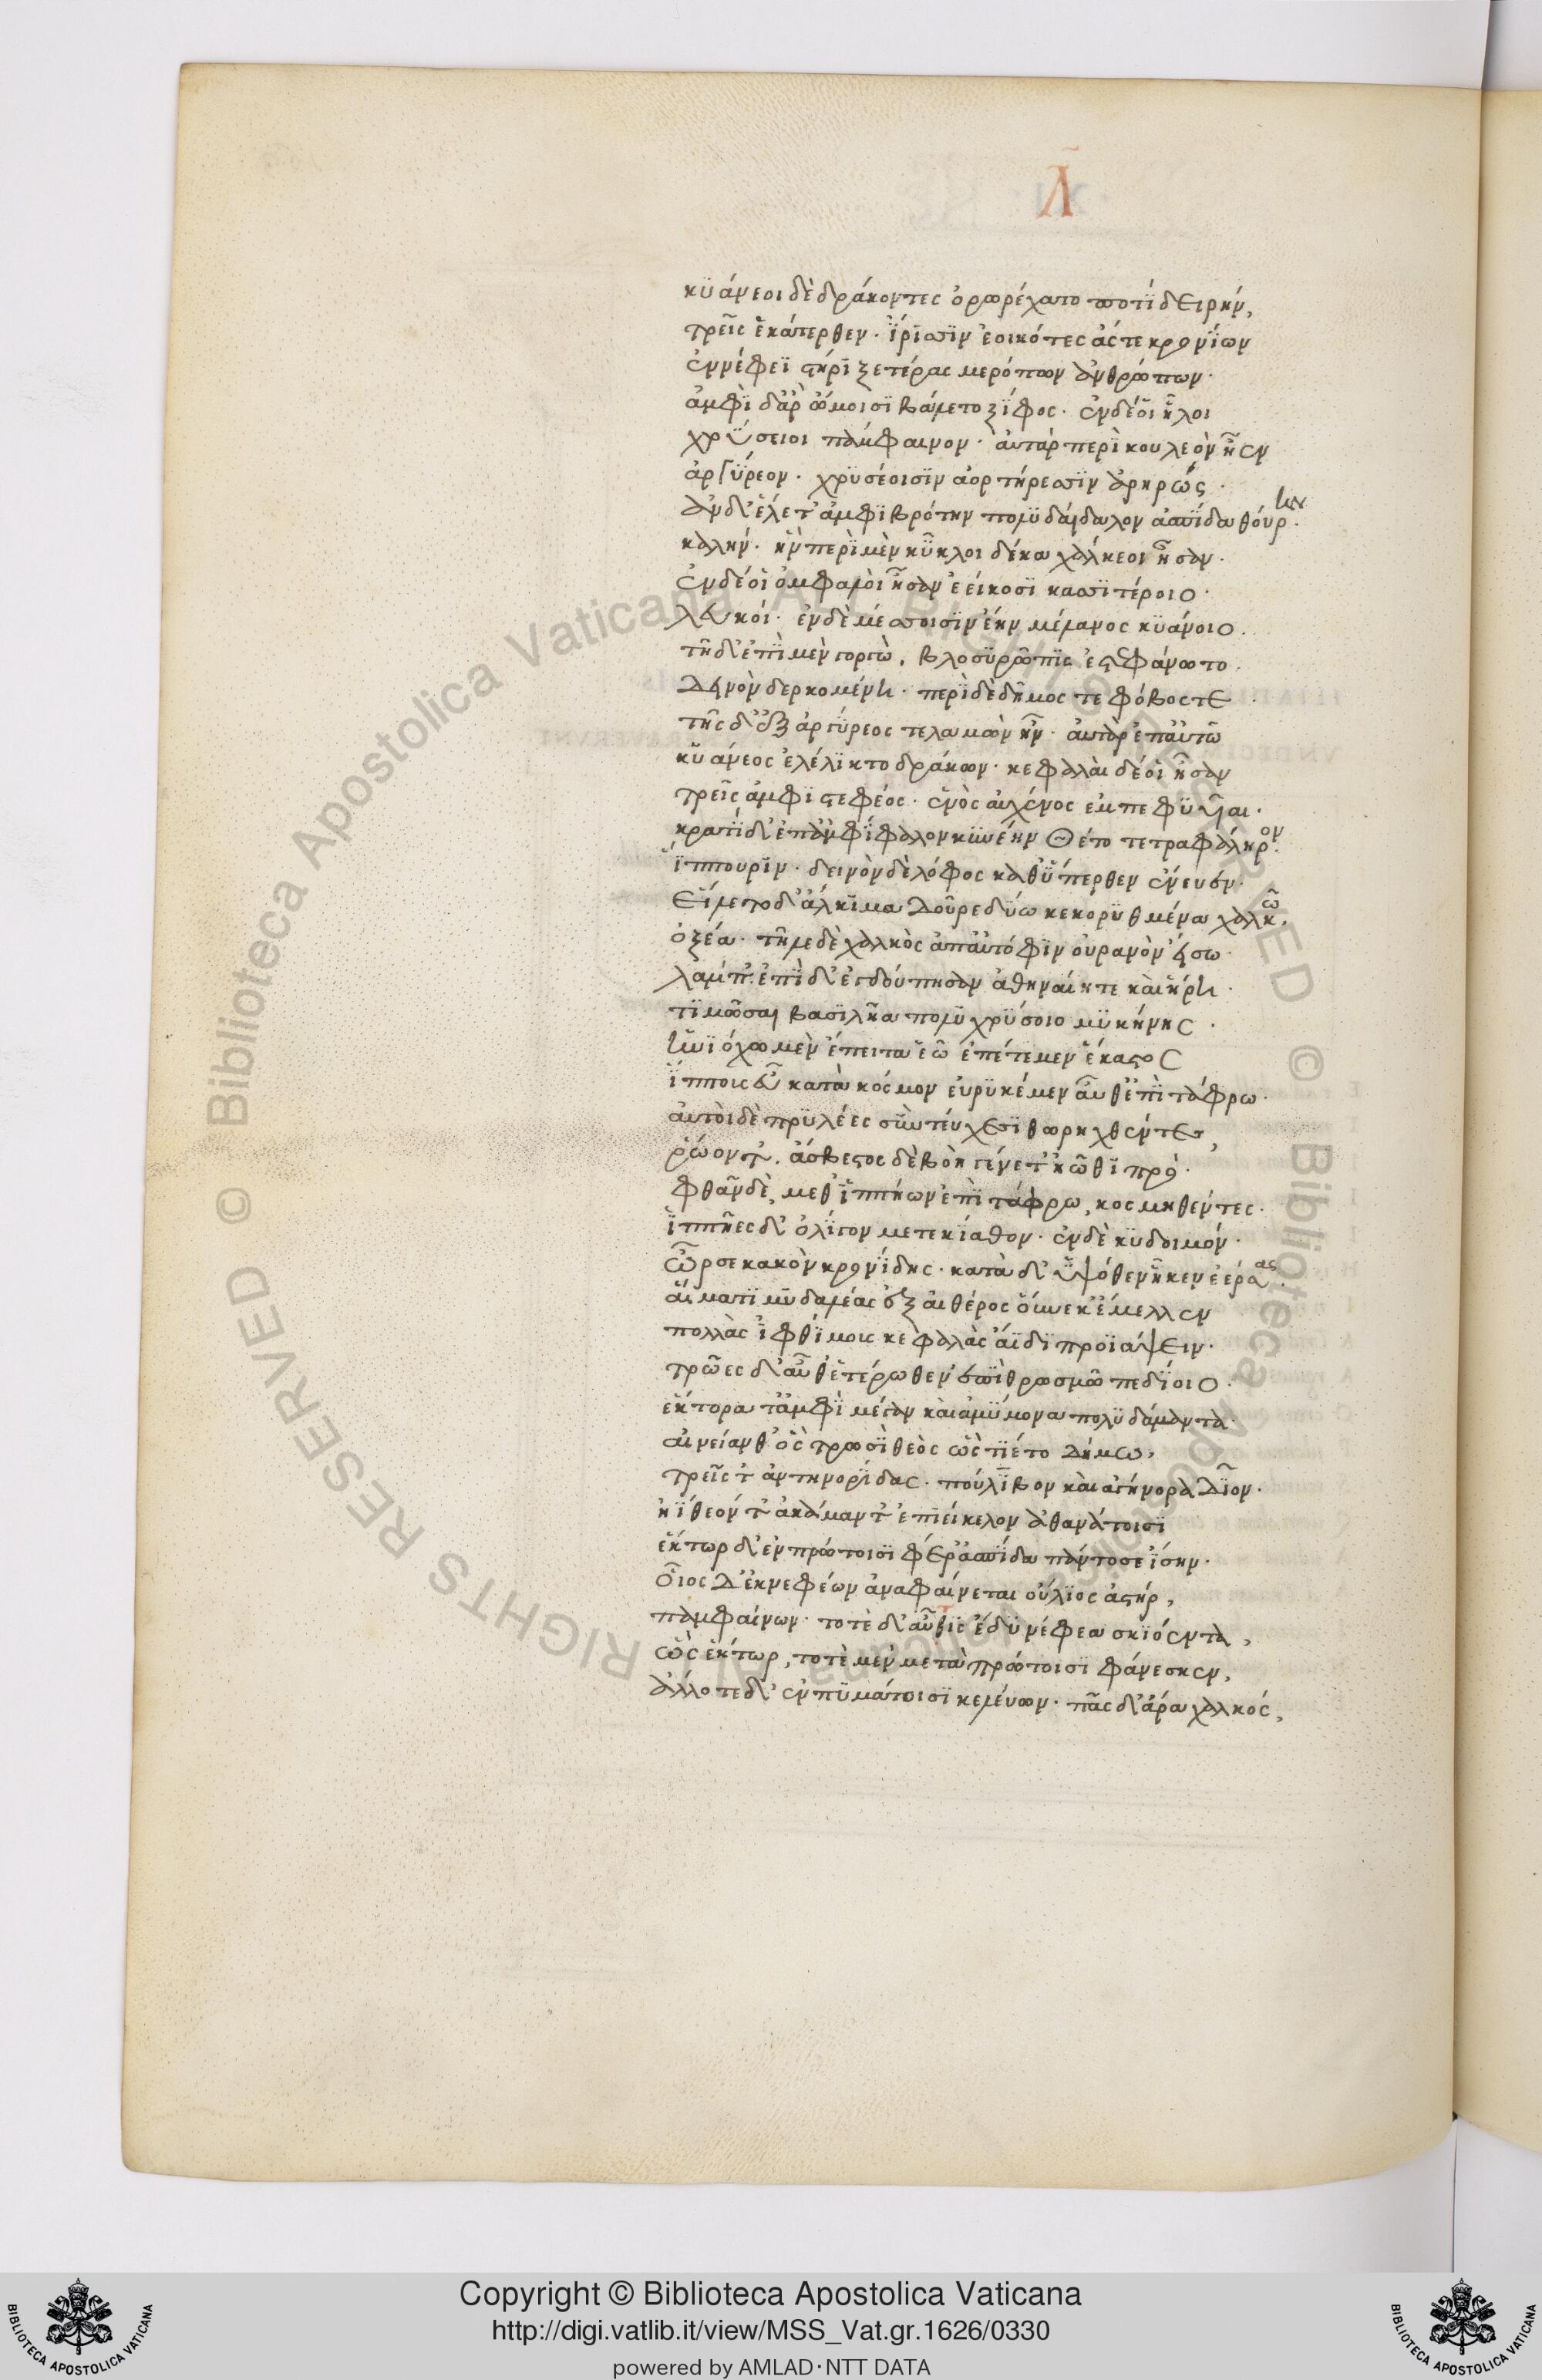 Λ̄
κϋάνεοι δὲ δράκοντες ὀρωρέχατο ποτῒ δειρήν,
τρεῖς ἑκάτερθεν· ἴ̈ρϊσσϊν ἐοικότες ἅς τε κρονΐων
ἐν νέφεϊ στήρϊξε τέρας μερόπων ἀνθρώπων·
ἀμφῒ δ' ἄρ' ὤμοισϊ βάλετο ξΐφος· ἐν δέ οἱ ἧλοι
χρΰσειοι πάμφαινον· ἀυτὰρ περῒ κουλεὸν ἦεν
ἀργΰρεον· χρϋσέοισϊν ἀορτήρεσσϊν ἀρηρώς·
ἂν δ' ἕλετ' ἀμφϊβρότην πολϋδάιδαλον ἀσπΐδα θοῦριν·
καλήν· ἣν περῒ μὲν κΰκλοι δέκα χάλκεοι ἦσαν·
ἐν δέ οἱ ὀμφαλὸι ἦσαν ἐείκοσϊ κασσϊτέροιο·
λευκόι· ἐν δὲ μέσοισϊν ἔην μέλανος κϋάνοιο.
τῆ δ' ἐπῒ μὲν γοργὼ, βλοσϋρῶπϊς ἐστεφάνωτο.
δεινὸν δερκομένη· περῒ δὲ δῆμος τε φόβος τε
τῆς δ' ἐξ ἀργΰρεος τελαμὼν ἦν· ἀυτὰρ ἐπ' ἀυτῶ
κϋάνεος ἐλέλϊκτο δράκων· κεφαλὰι δέ οἱ ἦσαν
τρεῖς ἀμφϊστεφέος· ἑνὸς ἀυχένος ἐμπεφϋῦιαι·
κρατῒ δ' ἐπ' ἀμφΐφαλον κϋνέην θέτο τετραφάληρον·
ΐππουρϊν· δεινὸν δὲ λόφος καθΰπερθεν ἔνευεν·
εἵλετο δ' ἄλκϊμα δοῦρε δΰω κεκορϋθμένα χαλκῶ,
ὀξέα· τῆλε δὲ χαλκὸς ἀπ' ἀυτόφϊν ὀυρανὸν εἴσω·
λάμπ'. ἐπῒ δ' ἐγδούπησαν ἀθηναίη τε κὰι ἥρη·
τϊμῶσαι βασϊλῆα πολϋχρΰσοιο μϋκήνης·
ἡνϊόχω μὲν ἔπειτα ἑῶ ἐπέτελλεν ἕκαστος
ΐππους εὖ κατὰ κόσμον ἐυρϋκέμεν ἆυθ' ἐπῒ τάφρω·
ἀυτὸι δὲ πρϋλέες σϋν τέυχεσϊ θωρηχθέντες,
ῥώοντ'. ἄσβεστος δὲ βοὴ γένετ' ἠῶθϊ πρό·
φθὰν δὲ, μεθ' ΐππήων ἐπῒ τάφρω, κοσμηθέντες·
ΐππῆες δ' ὀλΐγον μετεκΐαθον· ἐν δὲ κϋδοιμόν·
ὦρσε κακὸν κρονΐδης· κατὰ δ' ΰψόθεν ἧκεν ἐέρσας·
ἅιματϊ μϋδαλέας ἐξ ἀιθέρος οὕνεκ' ἔμελλεν
πολλὰς ϊφθΐμους κεφαλὰς ἄϊδϊ προϊάψειν·
τρῶες δ' ἆυθ' ἑτέρωθεν ἐπῒ θρωσμῶ πεδΐοιο·
ἕκτορα τ' ἀμφῒ μέγαν κὰι ἀμΰμονα πολϋδάμαντα·
ἀινείαν θ' ὃς τρωσῒ θεὸς ὣς τΐετο δήμω,
τρεῖς τ' ἀντηνορΐδας· πόλϋβον κὰι ἀγήνορα δῖον·
ἠΐθεόν τ' ἀκάμαντ' ἐπϊείκελον ἀθανάτοισϊ
ἕκτωρ δ' ἐν πρώτοισϊ φέρ' ἀσπΐδα πάντοσε ΐσην·
οἷος δ' ἐκ νεφέων ἀναφαίνεται ὄυλϊος ἀστήρ,
παμφαίνων· τοτὲ δ' ἆυθϊς ἔδϋ νέφεα σκϊόεντα,
ὣς ἕκτωρ, τοτὲ μὲν μετὰ πρώτοισϊ φάνεσκεν,
ἄλλοτε δ' ἐν πϋμάτοισϊ κελέυων· πᾶς δ' ἄρα χαλκός,
Copyright © Biblioteca Apostolica Vaticana
http://digi.vatlib.it/view/MSS_Vat.gr.1626/0330
powered by AMLAD·NTT DATA